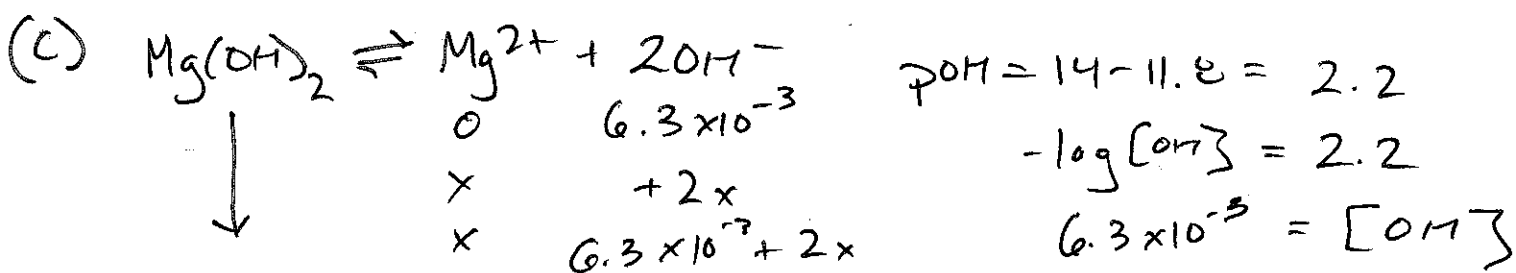 (c) Mg(OH)₂ ⇌ Mg²⁺ + 2OH⁻
0 6.3 x10⁻³
x +2x
x 6.3 x10⁻³ + 2x
pOH = 14-11.8 = 2.2
-log[OH] = 2.2
6.3 x10⁻³ = [OH]